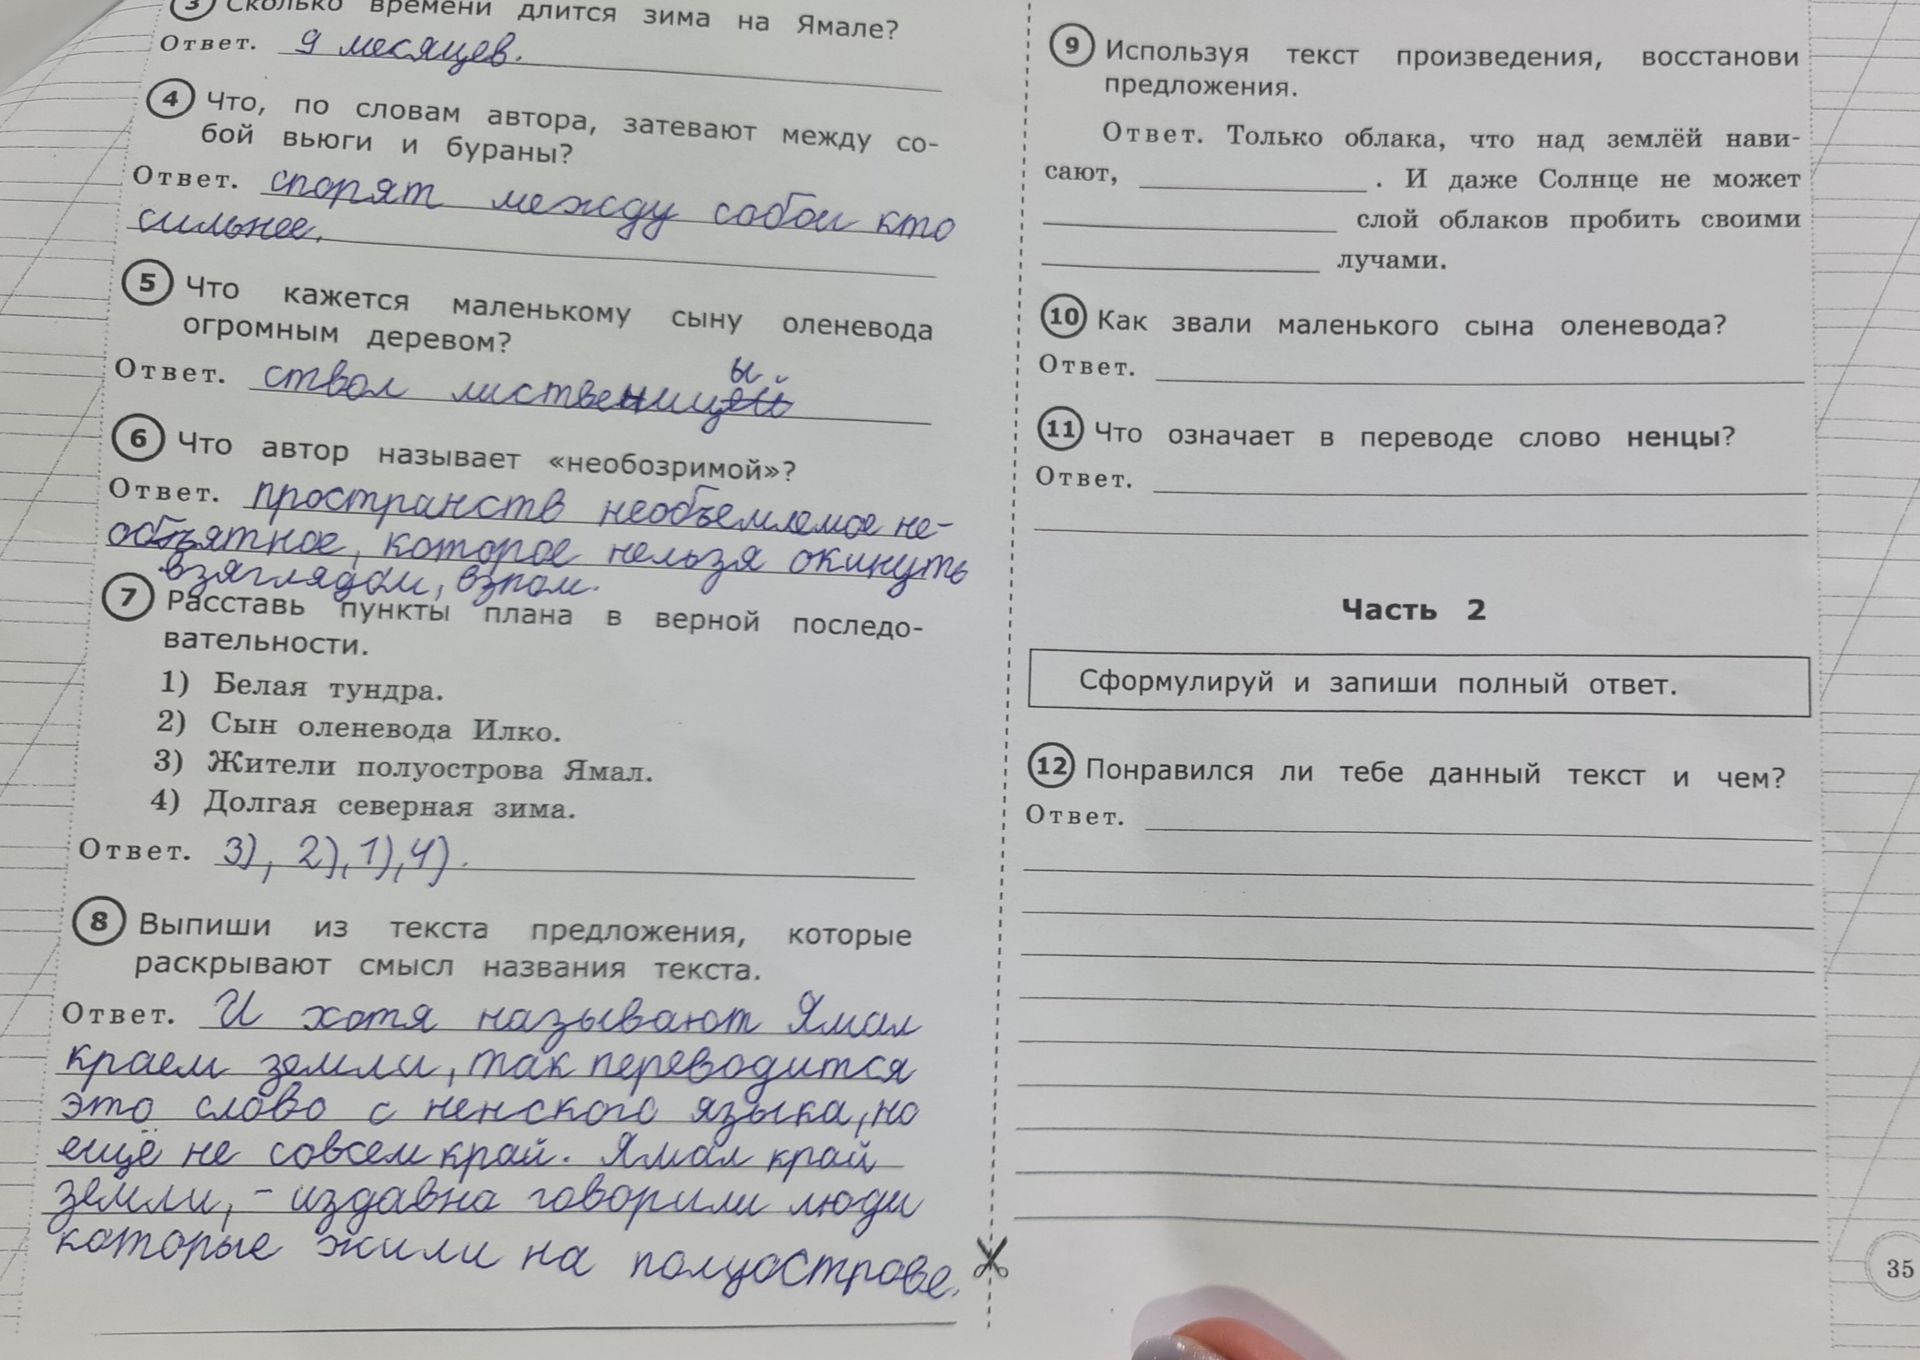 3 Сколько времени длится зима на Ямале?
Ответ. 9 месяцев.
4 Что, по словам автора, затевают между со-
бой вьюги и бураны?
Ответ. спорят между собой кто
сильнее.
5 Что кажется маленькому сыну оленевода
огромным деревом?
Ответ. ствол лиственицы
6 Что автор называет «необозримой»?
Ответ. пространств необъемлемое не-
объятное, которое нельзя окинуть
взяглядом, взром.
7 Расставь пункты плана в верной последо-
вательности.
1) Белая тундра.
2) Сын оленевода Илко.
3) Жители полуострова Ямал.
4) Долгая северная зима.
Ответ. 3), 2), 1), 4).
8 Выпиши из текста предложения, которые
раскрывают смысл названия текста.
Ответ. И хотя называют Ямал
краем земли, так переводится
это слово с ненского языка, но
ещё не совсем край. Ямал край
земли, - издавна говорили люди
которые жили на полуострове.
9 Используя текст произведения, восстанови
предложения.
Ответ. Только облака, что над землёй нави-
сают, . И даже Солнце не может
слой облаков пробить своими
лучами.
10 Как звали маленького сына оленевода?
Ответ.
11 Что означает в переводе слово ненцы?
Ответ.
Часть 2
Сформулируй и запиши полный ответ.
12 Понравился ли тебе данный текст и чем?
Ответ.
35